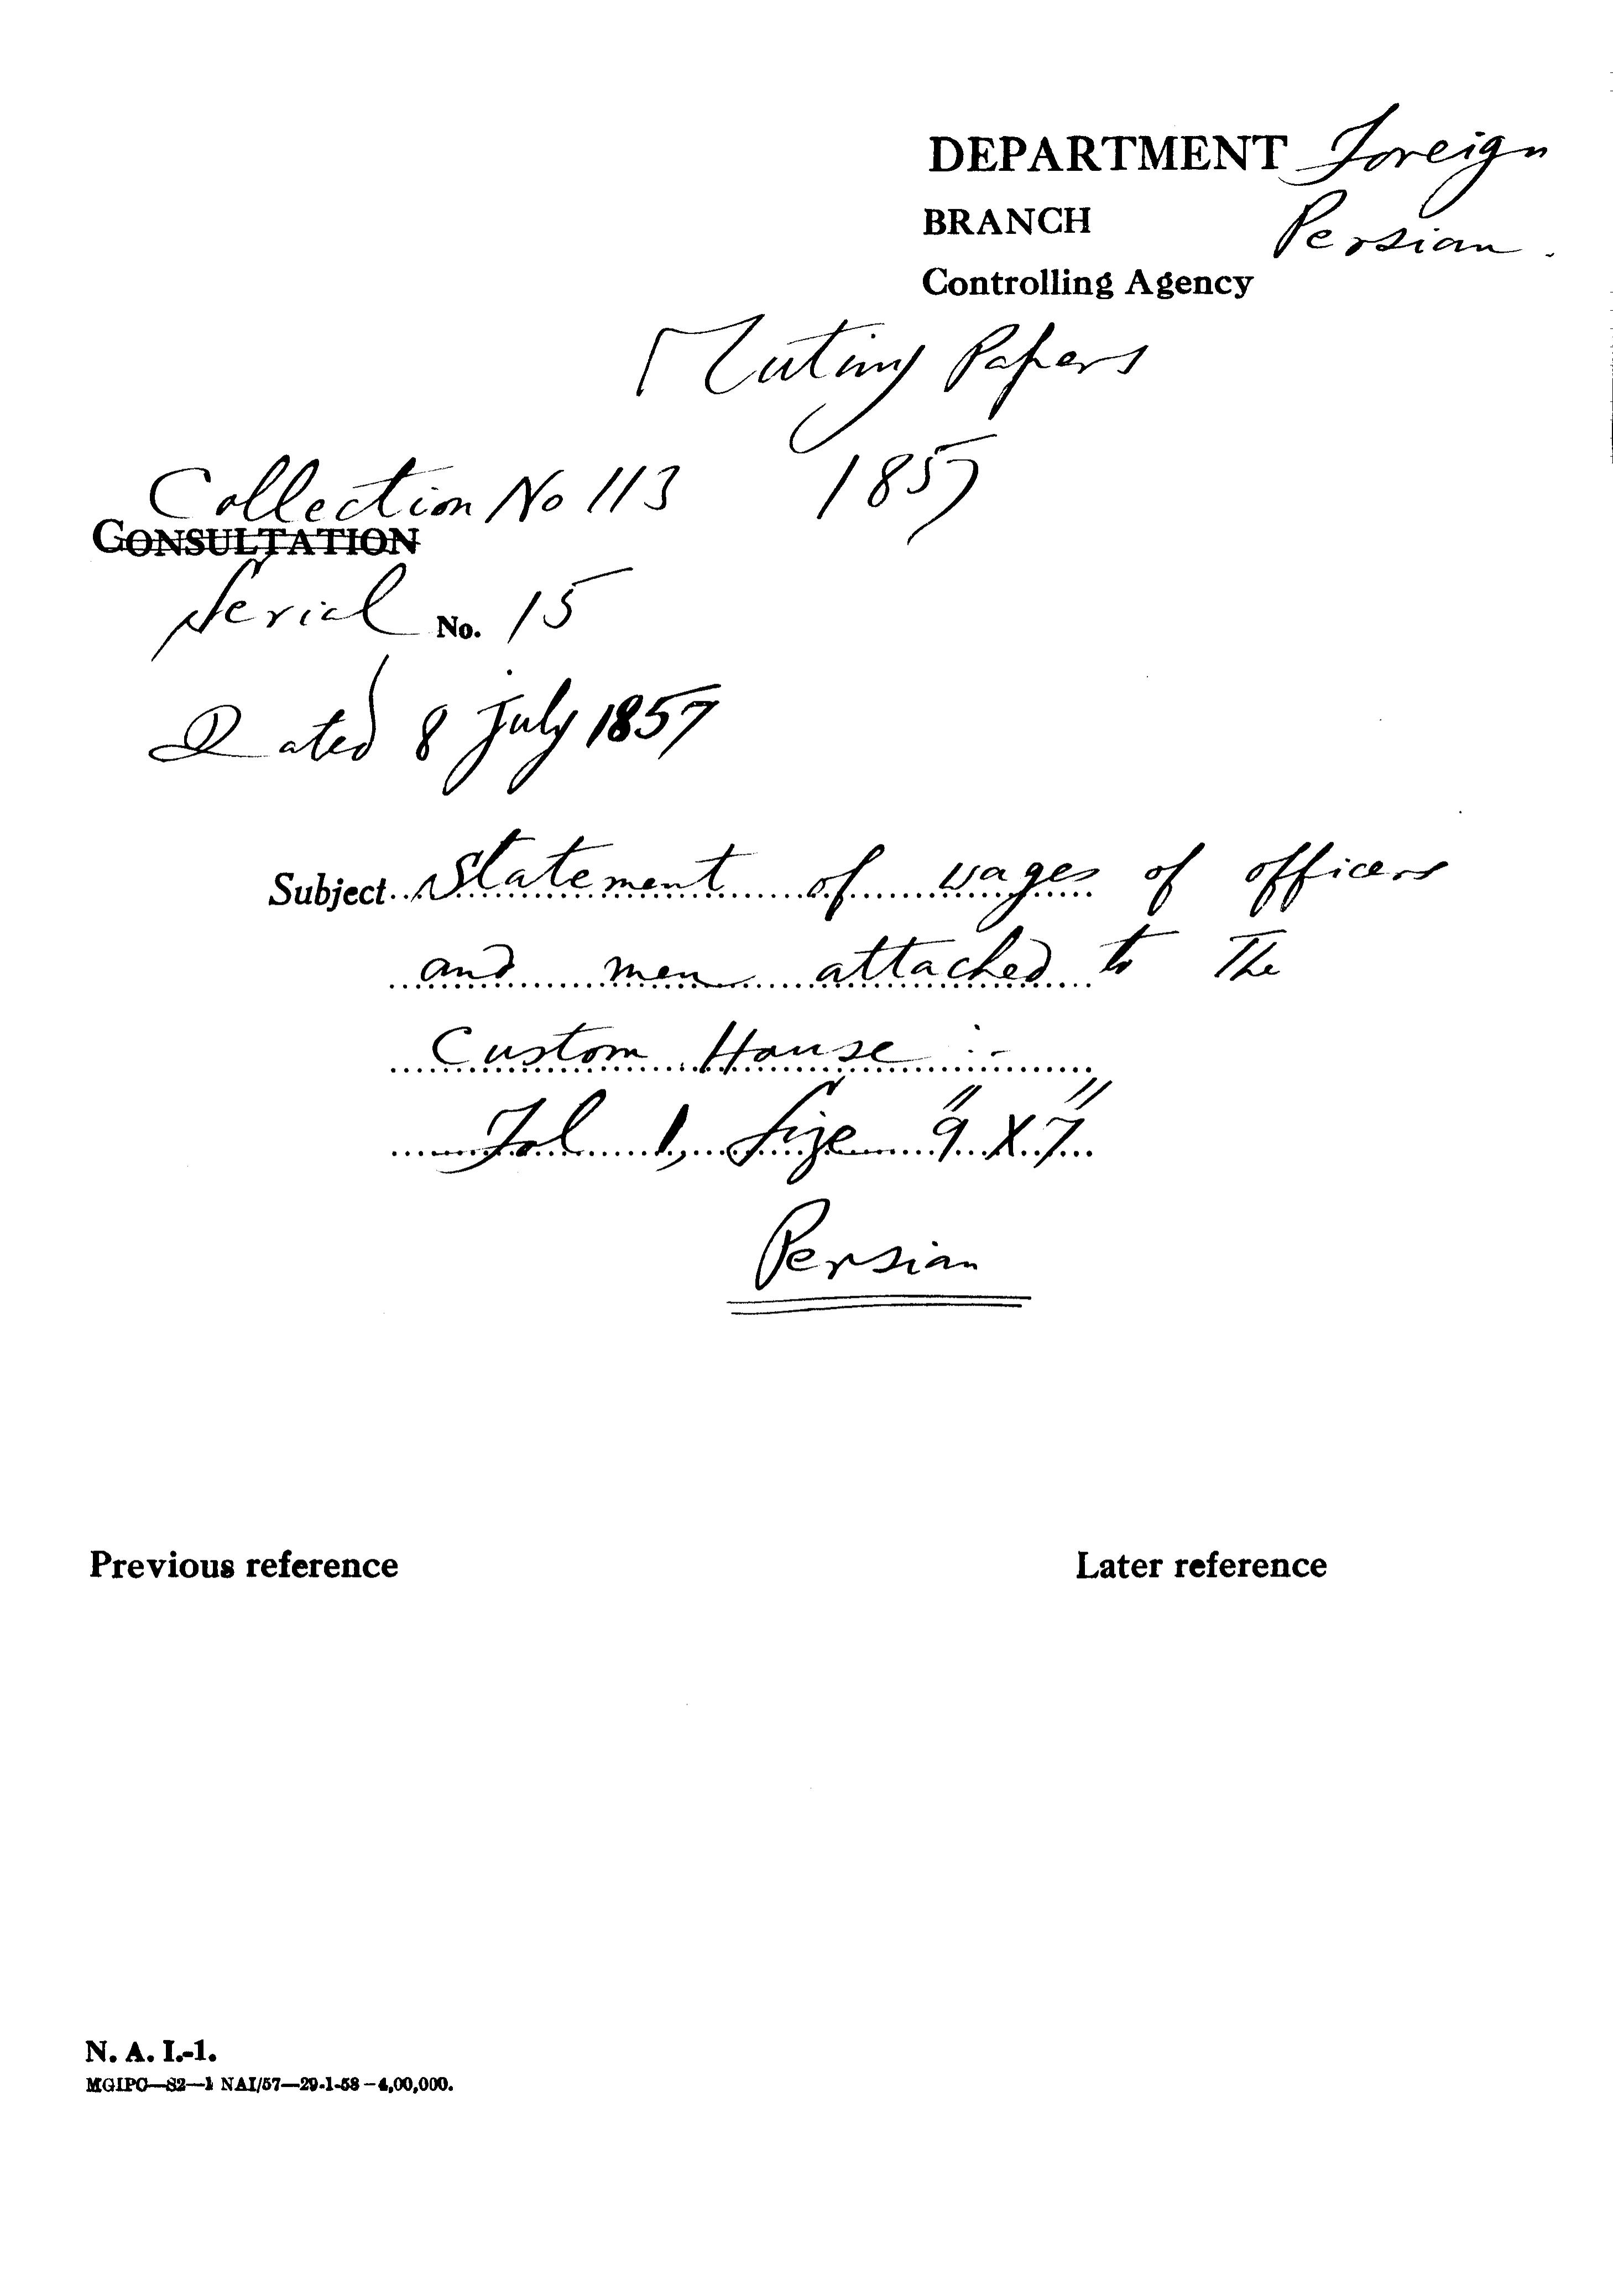 DEPARTMENT Foreign
BRANCH Persian.
Controlling Agency
Mutiny Papers
1857
Collection No 113
CONSULTATION
Serial No. 15
Dated 8 July 1857
Subject Statement of wages of officers
and men attached to The
Custom House :-
Fol 1, Size 9" X 7"
Persian
Previous reference
Later reference
N. A. I.-1.
MGIPC—S2—1 NAI/57—29-1-58—4,00,000.